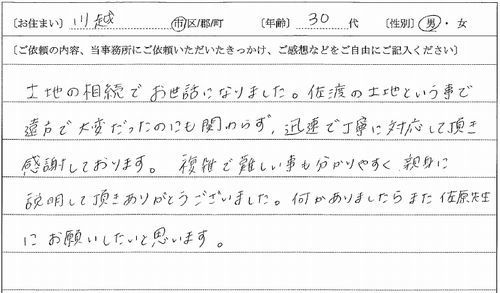 [お住まい] 川越 市/区/郡/町 [年齢] 30 代 [性別] 男・女
[ご依頼の内容、当事務所にご依頼いただいたきっかけ、ご感想などをご自由にご記入ください]
土地の相続でお世話になりました。佐渡の土地という事で
遠方で大変だったのにも関わらず、迅速で丁寧に対応して頂き
感謝しております。複雑で難しい事も分かりやすく、親身に
説明して頂きありがとうございました。何かありましたらまた佐原先生
にお願いしたいと思います。